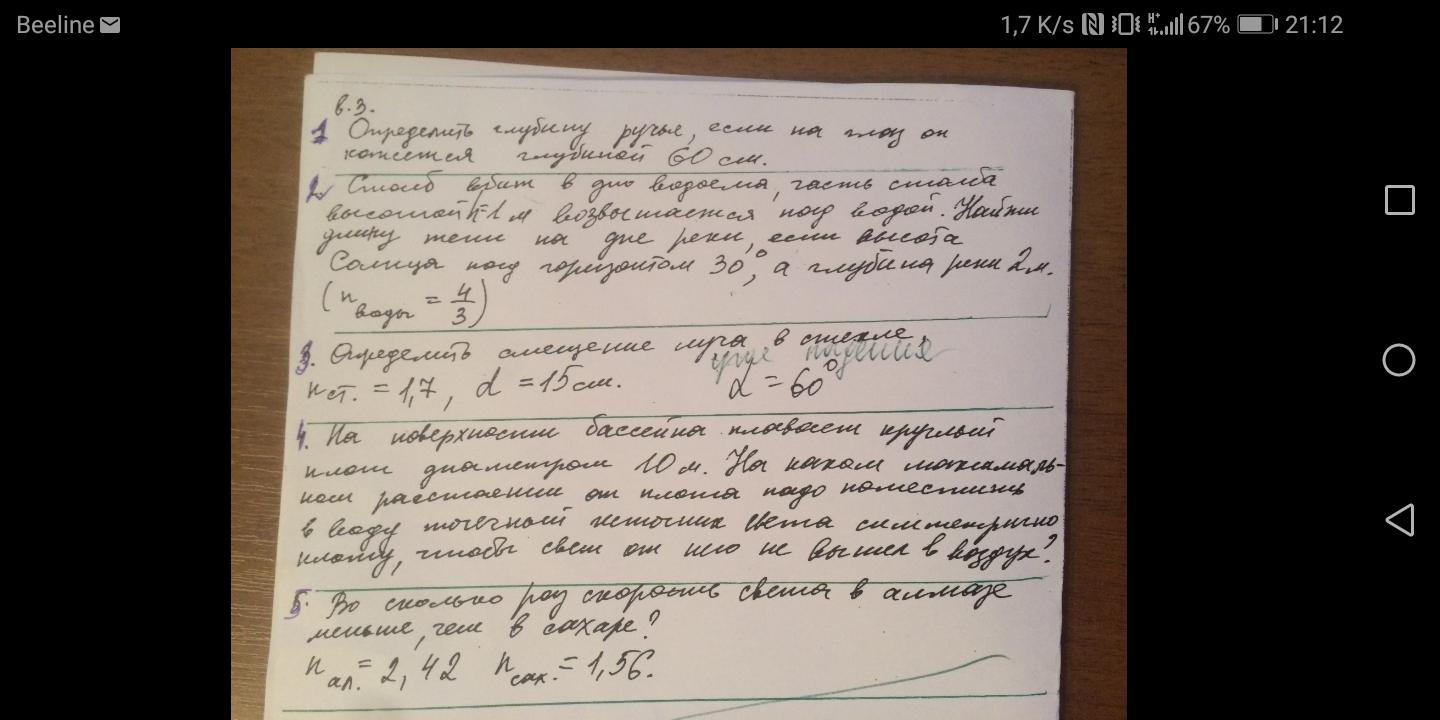 Beeline
1,7 K/s
H+
67%
21:12
в.3.
1 Определить глубину ручья, если на глаз он
кажется глубиной 60 см.
2. Столб вбит в дно водоема, часть столба
высотой h=1 м возвышается над водой. Найти
длину тени на дне реки, если высота
Солнца над горизонтом 30°, а глубина реки 2 м.
(n воды = 4/3)
3. Определить смещение луча в стекле,
угле падения
n ст. = 1,7, d = 15 см. α = 60°
4. На поверхности бассейна плавает круглый
плот диаметром 10 м. На каком максималь-
ном расстоянии от плота надо поместить
в воду точечный источник света симметрично
плоту, чтобы свет от него не вышел в воздух?
5. Во сколько раз скорость света в алмазе
меньше, чем в сахаре?
n ал. = 2,42 n сах. = 1,56.